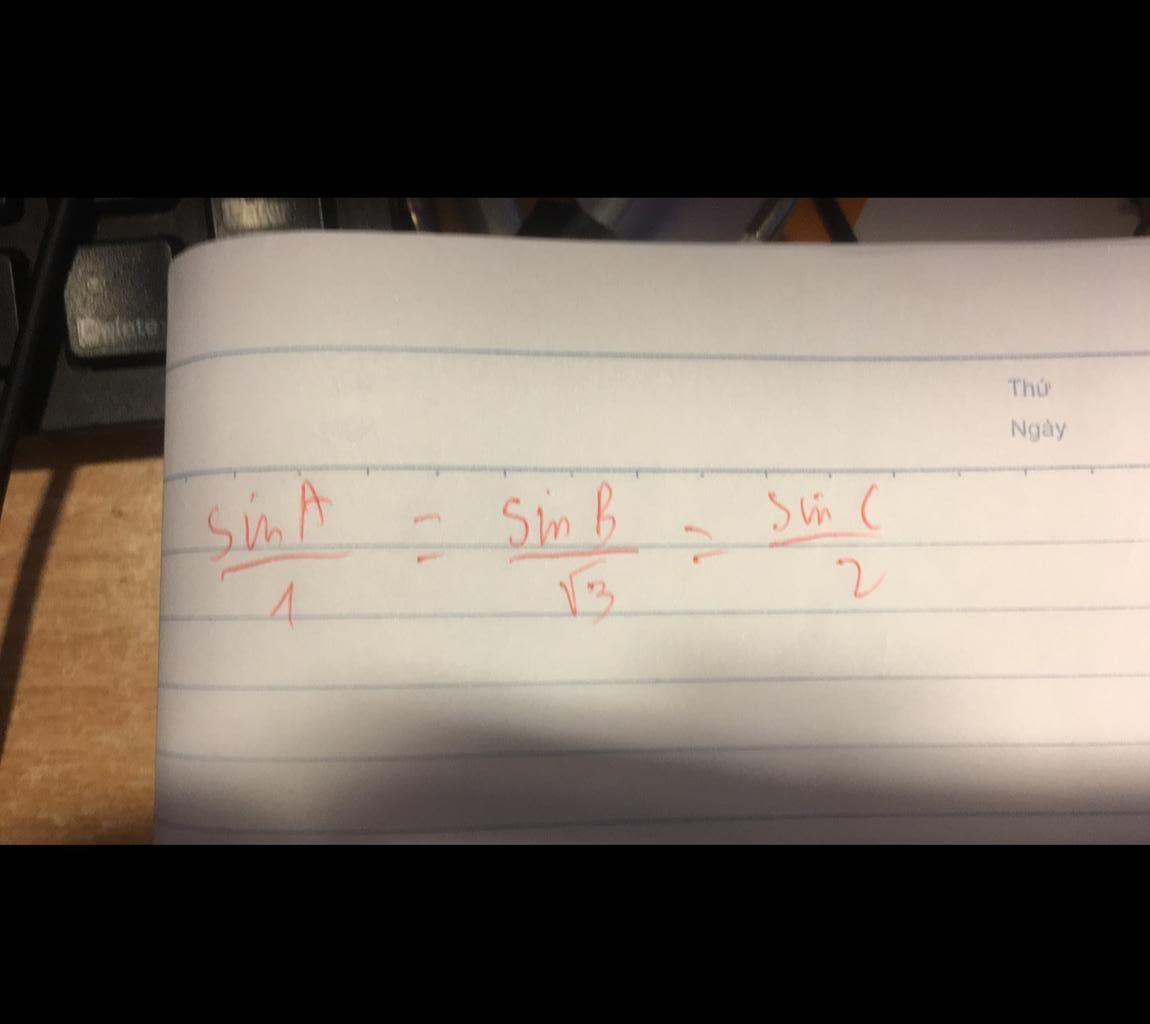 Delete
Thứ
Ngày
sin A / 1 = sin B / √3 = sin C / 2